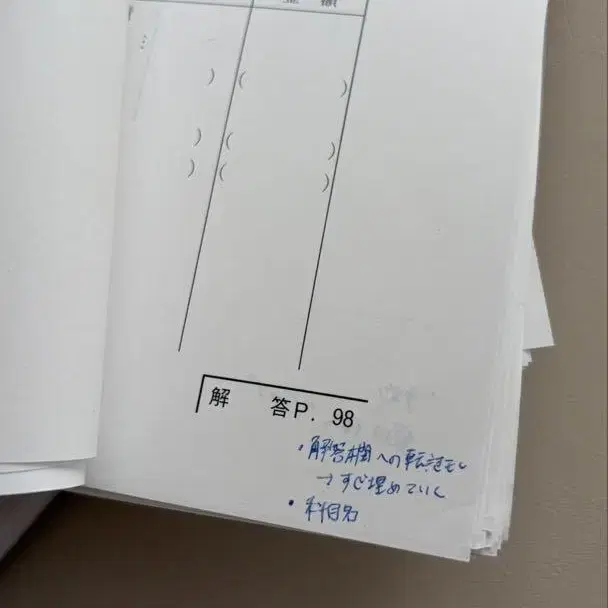 金 額
) ( )
) ( )
) ( )
解 答P. 98
・解答欄への転記もし
→すぐ埋めていく
・科目名